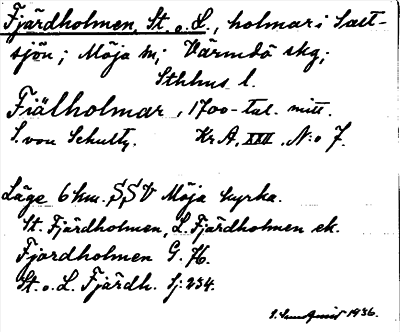 Fjärdholmen, St. o. L., holmar i Salt-
sjön; Möja sn; Värmdö skg;
Sthlms l.
Fiälholmar, 1700-tal. mitt.
S. von Schultz. Kr A, XXII, N:o 7.
Läge 6 km. SSV Möja kyrka.
St. Fjärdholmen, L. Fjärdholmen ek.
Fjärdholmen G. 76.
St. o. L. Fjärdh. Sj: 234.
1936.